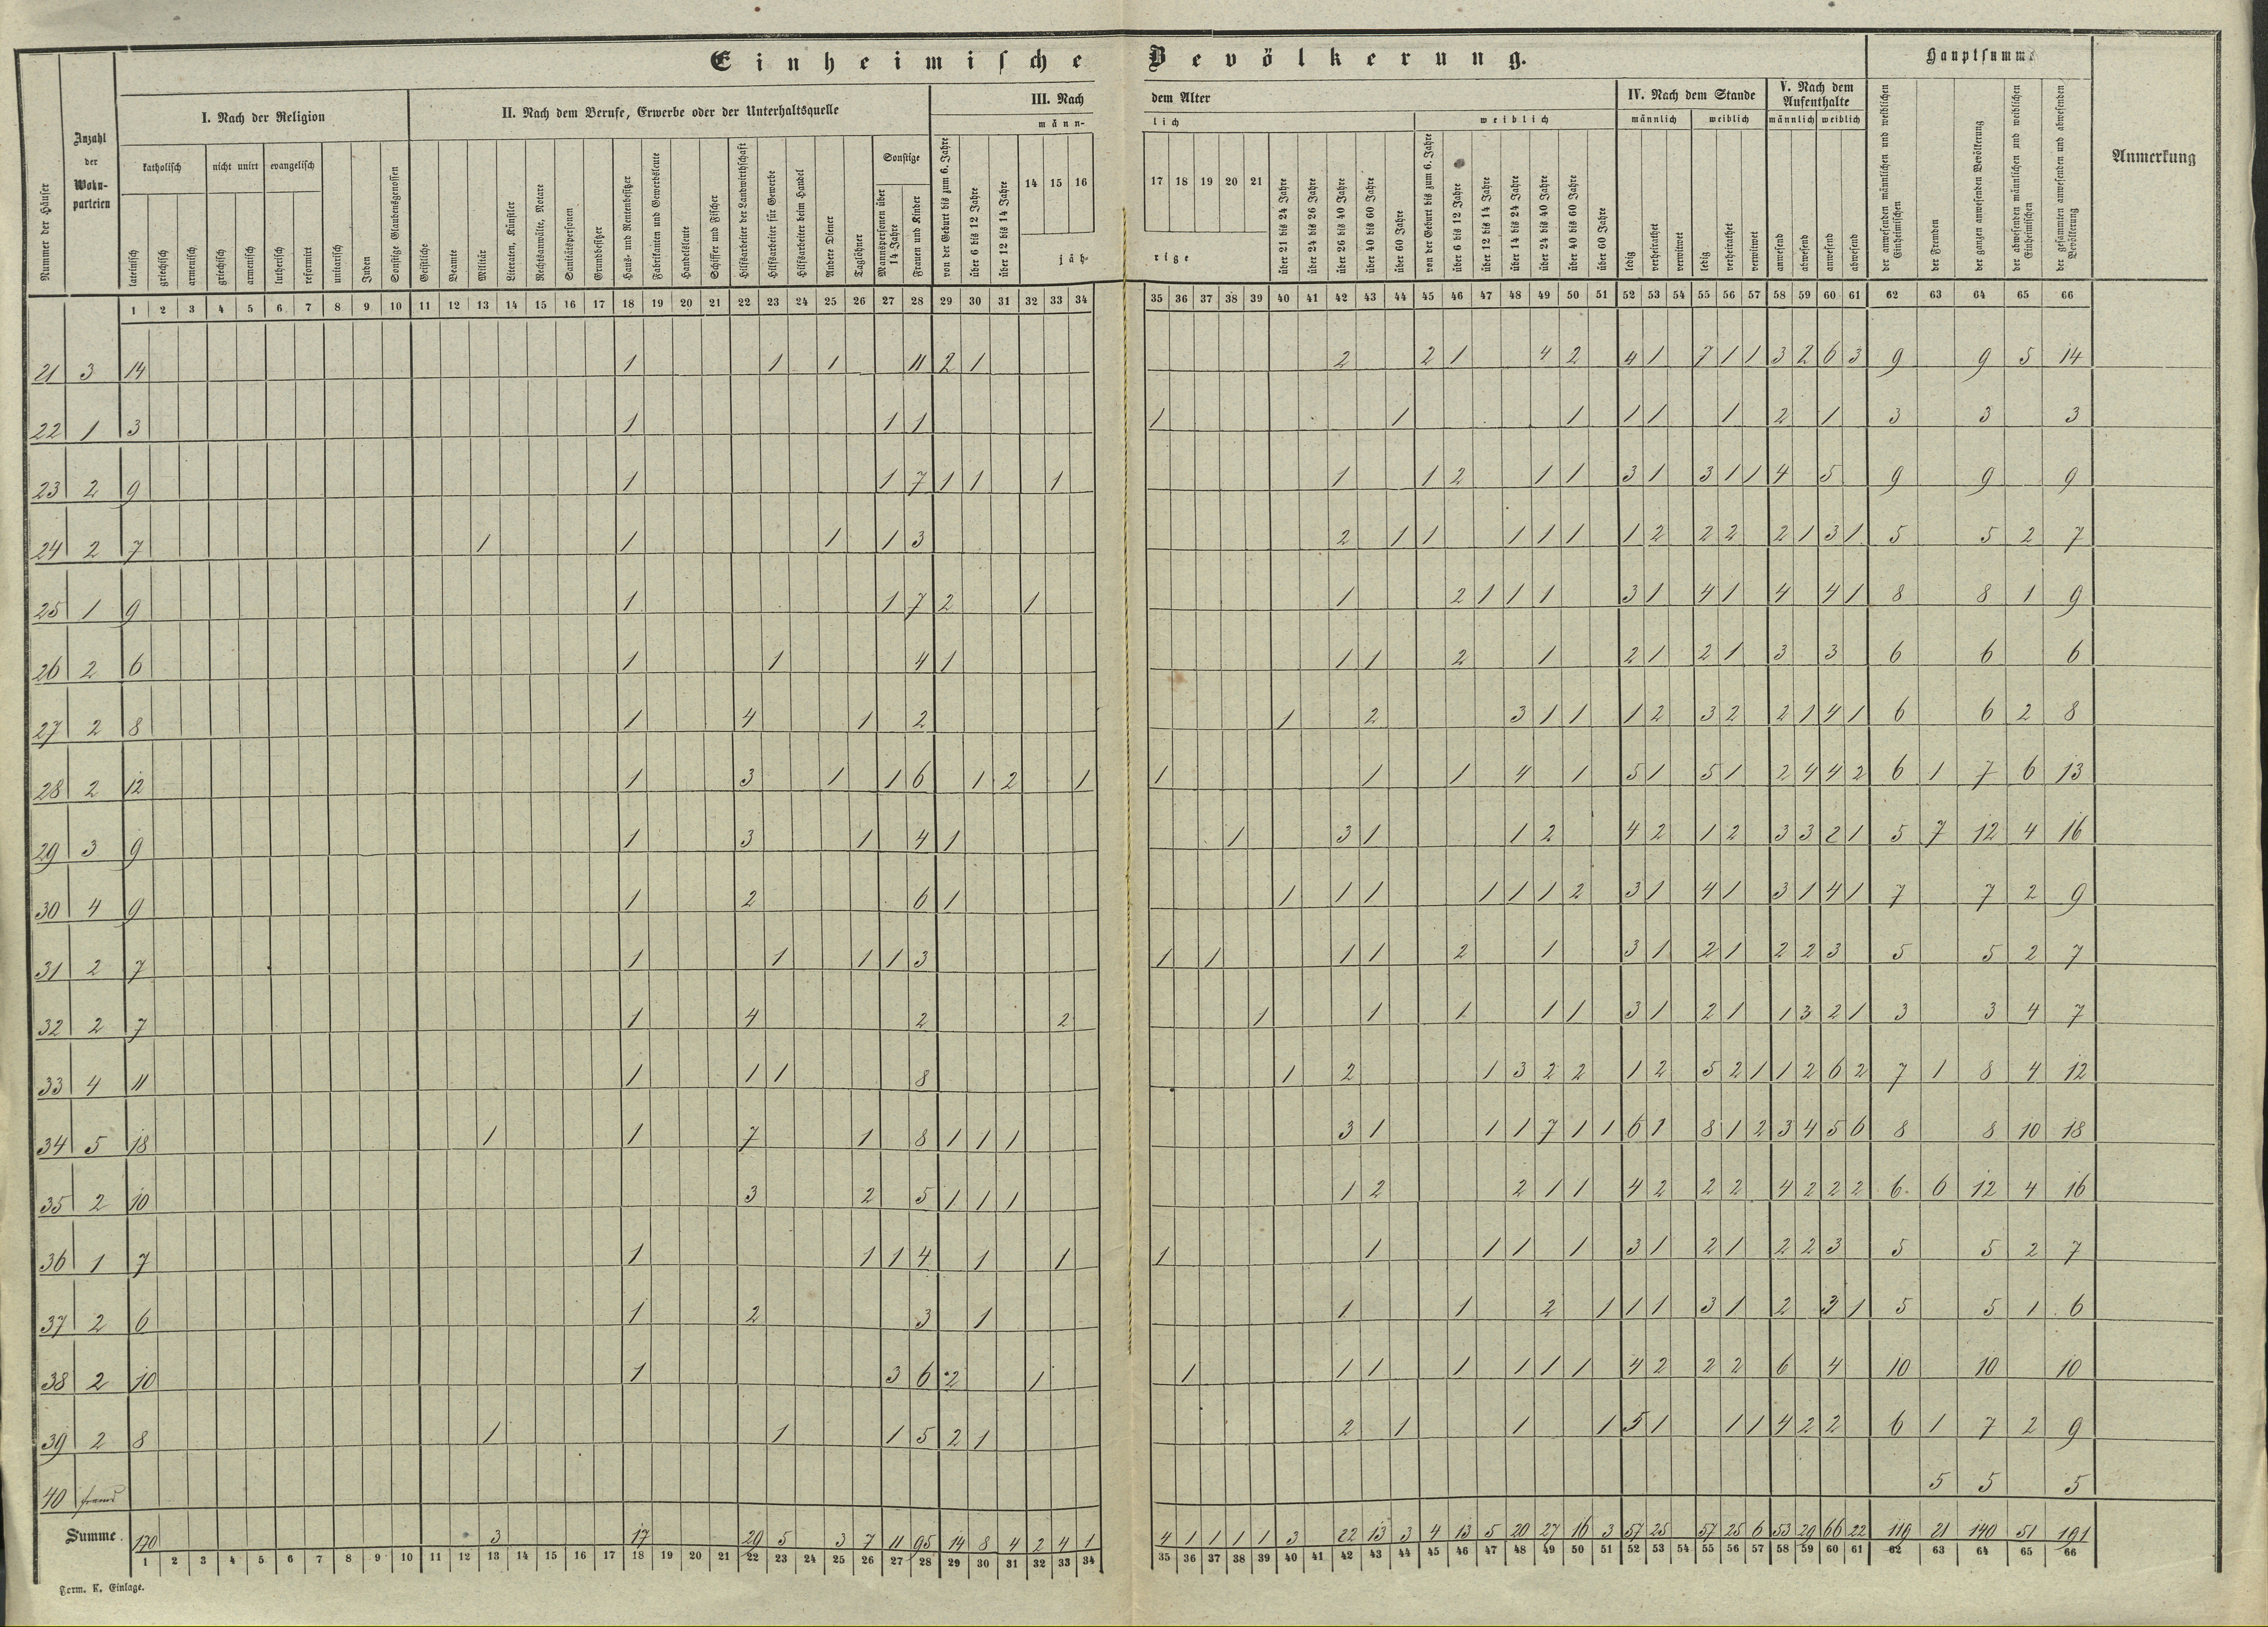 Einheimische Bevölkerung.
Nummer der Häuser
Anzahl der Wohn-parteien
I. Nach der Religion
II. Nach dem Berufe, Erwerbe oder der Unterhaltsquelle
III. Nach dem Alter
IV. Nach dem Stande
V. Nach dem Aufenthalte
Hauptsumme
Anmerkung
katholisch
nicht unirt
evangelisch
Sonstige
männ-lich
weiblich
männlich weiblich männlich weiblich
lateinisch
griechisch
armenisch
griechisch
armenisch
lutherisch
reformirt
unitarisch
Juden
Sonstige Glaubensgenossen
Geistliche
Beamte
Militär
Literaten, Künstler
Rechtsanwälte, Notare
Sanitätspersonen
Grundbesitzer
Haus- und Rentenbesitzer
Fabrikanten und Gewerbsleute
Handelsleute
Schiffer und Fischer
Hilfsarbeiter der Landwirthschaft
Hilfsarbeiter für Gewerbe
Hilfsarbeiter beim Handel
Andere Diener
Taglöhner
Mannspersonen über 14 Jahre
Frauen und Kinder
von der Geburt bis zum 6. Jahre
über 6 bis 12 Jahre
über 12 bis 14 Jahre
14 15 16 17 18 19 20 21
jäh-rige
über 21 bis 24 Jahre
über 24 bis 26 Jahre
über 26 bis 40 Jahre
über 40 bis 60 Jahre
über 60 Jahre
von der Geburt bis zum 6. Jahre
über 6 bis 12 Jahre
über 12 bis 14 Jahre
über 14 bis 24 Jahre
über 24 bis 40 Jahre
über 40 bis 60 Jahre
über 60 Jahre
ledig
verheirathet
verwitwet
ledig
verheirathet
verwitwet
anwesend
abwesend
anwesend
abwesend
der anwesenden männlichen und weiblichen Einheimischen
der Fremden
der ganzen anwesenden Bevölkerung
der abwesenden männlichen und weiblichen Einheimischen
der gesammten anwesenden und abwesenden Bevölkerung
1 2 3 4 5 6 7 8 9 10 11 12 13 14 15 16 17 18 19 20 21 22 23 24 25 26 27 28 29 30 31 32 33 34 35 36 37 38 39 40 41 42 43 44 45 46 47 48 49 50 51 52 53 54 55 56 57 58 59 60 61 62 63 64 65 66
21 3 14 1 1 1 11 2 1 2 2 1 4 2 4 1 7 1 1 3 2 6 3 9 9 5 14
22 1 3 1 1 1 1 1 1 1 1 1 2 1 3 3 3
23 2 9 1 1 7 1 1 1 1 1 2 1 1 3 1 3 1 1 4 5 9 9 9
24 2 7 1 1 1 1 3 2 1 1 1 1 1 1 2 2 2 2 1 3 1 5 5 2 7
25 1 9 1 1 7 2 1 1 2 1 1 1 3 1 4 1 4 4 1 8 8 1 9
26 2 6 1 1 4 1 1 1 2 1 2 1 2 1 3 3 6 6 6
27 2 8 1 4 1 2 1 2 3 1 1 1 2 3 2 2 1 4 1 6 6 2 8
28 2 12 1 3 1 1 6 1 2 1 1 1 1 4 1 5 1 5 1 2 4 4 2 6 1 7 6 13
29 3 9 1 3 1 4 1 1 3 1 1 2 4 2 1 2 3 3 2 1 5 7 12 4 16
30 4 9 1 2 6 1 1 1 1 1 1 1 2 3 1 4 1 3 1 4 1 7 7 2 9
31 2 7 1 1 1 1 3 1 1 1 1 2 1 3 1 2 1 2 2 3 5 5 2 7
32 2 7 1 4 2 2 1 1 1 1 1 3 1 2 1 1 3 2 1 3 3 4 7
33 4 11 1 1 1 8 1 2 1 3 2 2 1 2 5 2 1 1 2 6 2 7 1 8 4 12
34 5 18 1 1 7 1 8 1 1 1 3 1 1 1 7 1 1 6 1 8 1 2 3 4 5 6 8 8 10 18
35 2 10 3 2 5 1 1 1 1 2 2 1 1 4 2 2 2 4 2 2 2 6 6 12 4 16
36 1 7 1 1 1 4 1 1 1 1 1 1 1 3 1 2 1 2 2 3 5 5 2 7
37 2 6 1 2 3 1 1 1 2 1 1 1 3 1 2 3 1 5 5 1 6
38 2 10 1 3 6 2 1 1 1 1 1 1 1 1 4 2 2 2 6 4 10 10 10
39 2 8 1 1 1 5 2 1 2 1 1 1 5 1 1 1 4 2 2 6 1 7 2 9
40 fremd 5 5 5
Summe. 170 3 17 29 5 3 7 11 95 14 8 4 2 4 1 4 1 1 1 1 3 22 13 3 4 13 5 20 27 16 3 57 25 57 25 6 53 29 66 22 119 21 140 51 191
1 2 3 4 5 6 7 8 9 10 11 12 13 14 15 16 17 18 19 20 21 22 23 24 25 26 27 28 29 30 31 32 33 34 35 36 37 38 39 40 41 42 43 44 45 46 47 48 49 50 51 52 53 54 55 56 57 58 59 60 61 62 63 64 65 66
Form. K. Einlage.